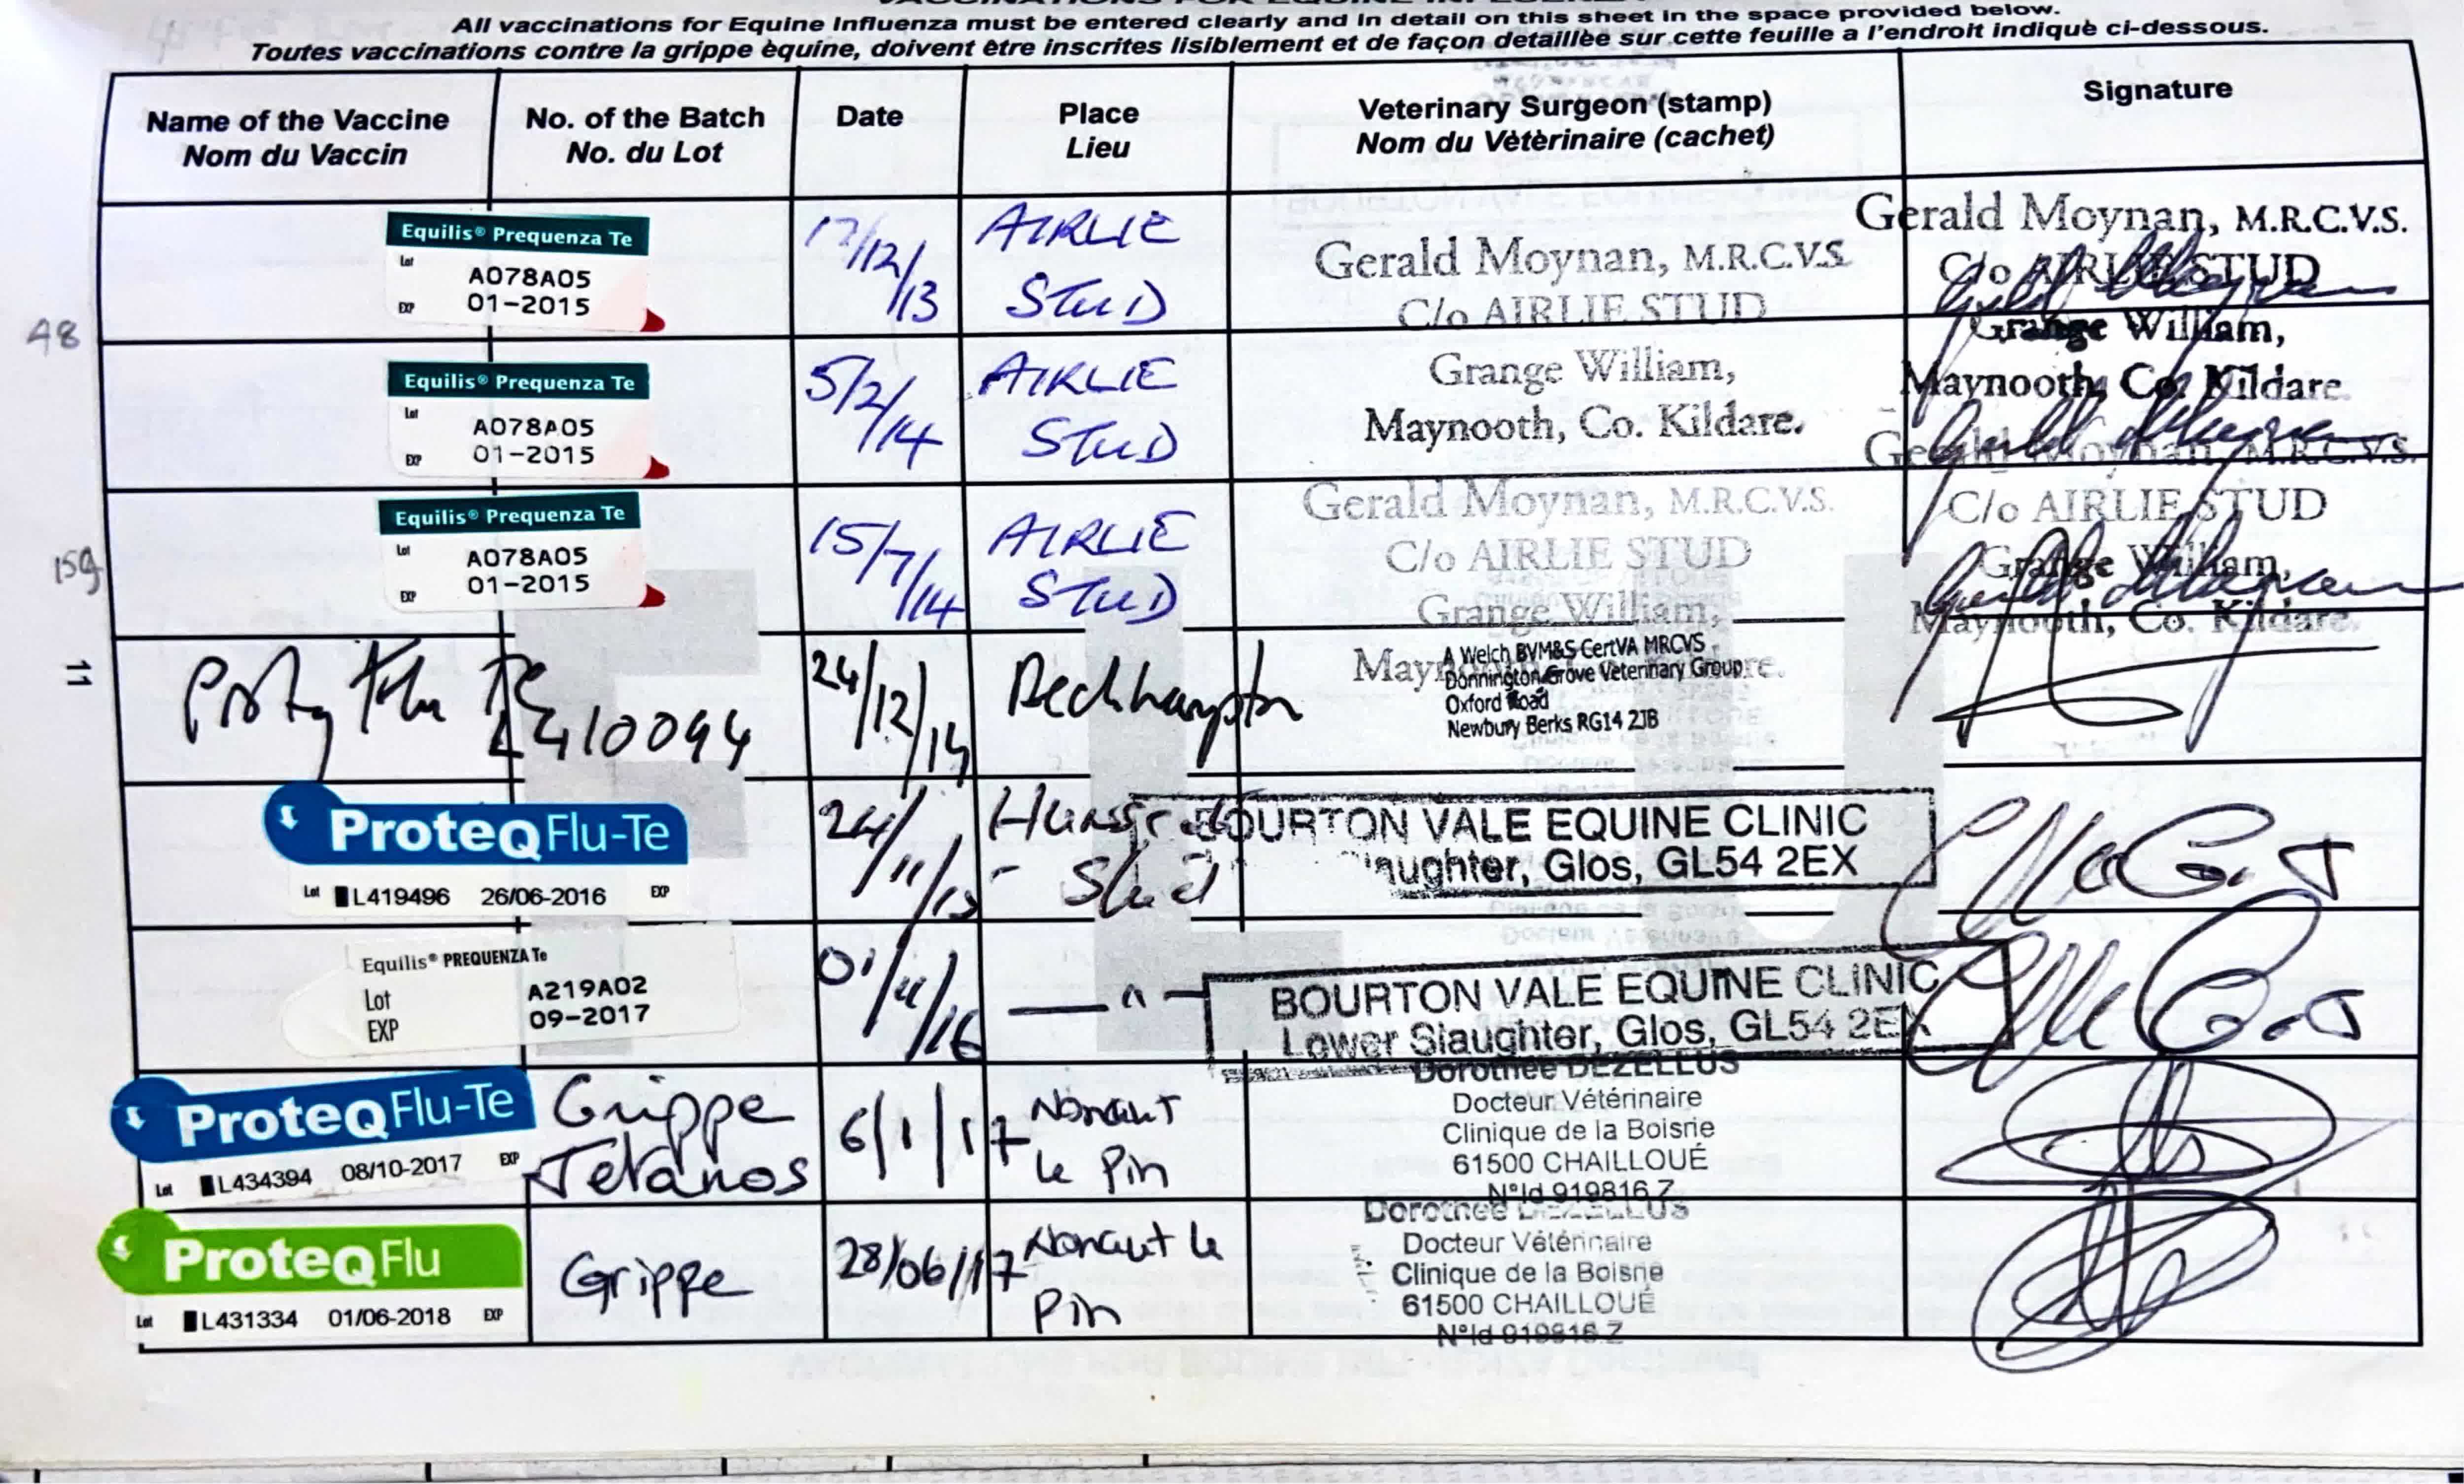 All vaccinations for Equine Influenza must be entered clearly and in detail on this sheet in the space provided below.
Toutes vaccinations contre la grippe èquine, doivent ètre inscrites lisiblement et de façon detaillèe sur cette feuille a l'endroit indiquè ci-dessous.
Name of the Vaccine
Nom du Vaccin
No. of the Batch
No. du Lot
Date
Place
Lieu
Veterinary Surgeon (stamp)
Nom du Vètèrinaire (cachet)
Signature
Equilis® Prequenza Te
Lot A078A05
EXP 01-2015
17/12/13
AIRLIE
STUD
Gerald Moynan, M.R.C.V.S.
C/o AIRLIE STUD
Gerald Moynan, M.R.C.V.S.
C/o AIRLIE STUD
48
Equilis® Prequenza Te
Lot A078A05
EXP 01-2015
5/2/14
AIRLIE
STUD
Grange William,
Maynooth, Co. Kildare.
Grange William,
Maynooth, Co. Kildare.
Gerald Moynan, M.R.C.V.S.
159
Equilis® Prequenza Te
Lot A078A05
EXP 01-2015
15/7/14
AIRLIE
STUD
Gerald Moynan, M.R.C.V.S.
C/o AIRLIE STUD
Grange William,
C/o AIRLIE STUD
Grange William,
Maynooth, Co. Kildare.
11
Te
L410094
24/12/14
Beckhampton
A Welch BVM&S CertVA MRCVS
Donnington Grove Veterinary Group
Oxford Road
Newbury Berks RG14 2JB
ProteqFlu-Te
Lot L419496 26/06-2016 EXP
24/11/15
Stud
BOURTON VALE EQUINE CLINIC
Slaughter, Glos, GL54 2EX
Equilis® PREQUENZA Te
Lot A219A02
EXP 09-2017
01/11/16
— " —
BOURTON VALE EQUINE CLINIC
Lower Slaughter, Glos, GL54 2EX
ProteqFlu-Te
Lot L434394 08/10-2017 EXP
Grippe
Tetanos
6/1/17
Nonant
le Pin
Dorothée DEZELLUS
Docteur Vétérinaire
Clinique de la Boisrie
61500 CHAILLOUÉ
N°Id 919816 Z
ProteqFlu
Lot L431334 01/06-2018 EXP
Grippe
28/06/17
Nonant le
Pin
Dorothée DEZELLUS
Docteur Vétérinaire
Clinique de la Boisrie
61500 CHAILLOUÉ
N°Id 919816 Z